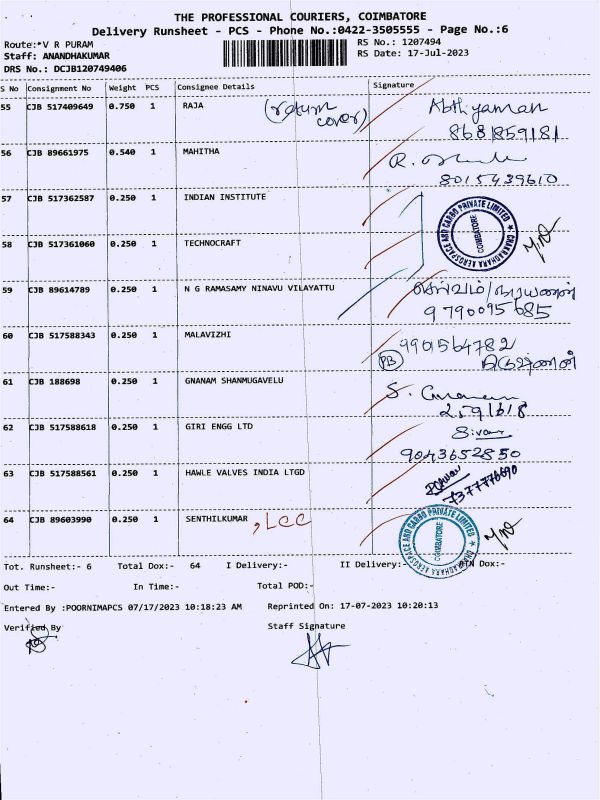 THE PROFESSIONAL COURIERS, COIMBATORE
Delivery Runsheet - PCS - Phone No.:0422-3505555 - Page No.:6
Route:*V R PURAM
RS No.: 1207494
Staff: ANANDHAKUMAR
RS Date: 17-Jul-2023
DRS No.: DCJB120749406
S No Consignment No Weight PCS Consignee Details Signature
55 CJB 517409649 0.750 1 RAJA (return cover) Abthiyaman
8681859181
56 CJB 89661975 0.540 1 MAHITHA R.
8015439610
57 CJB 517362587 0.250 1 INDIAN INSTITUTE
CHAKRADHARA AEROSPACE AND CARGO PRIVATE LIMITED
COIMBATORE
58 CJB 517361060 0.250 1 TECHNOCRAFT
59 CJB 89614789 0.250 1 N G RAMASAMY NINAVU VILAYATTU செல்வம்/நாராயணன்
9790095685
60 CJB 517588343 0.250 1 MALAVIZHI 9901564782
PB
61 CJB 188698 0.250 1 GNANAM SHANMUGAVELU S.
2591618
62 CJB 517588618 0.250 1 GIRI ENGG LTD Sivam
9043652850
63 CJB 517588561 0.250 1 HAWLE VALVES INDIA LTGD
7377776690
64 CJB 89603990 0.250 1 SENTHILKUMAR , LCC
CHAKRADHARA AEROSPACE AND CARGO PRIVATE LIMITED
COIMBATORE
Tot. Runsheet:- 6 Total Dox:- 64 I Delivery:- II Delivery:- RTN Dox:-
Out Time:- In Time:- Total POD:-
Entered By :POORNIMAPCS 07/17/2023 10:18:23 AM Reprinted On: 17-07-2023 10:20:13
Verified By Staff Signature